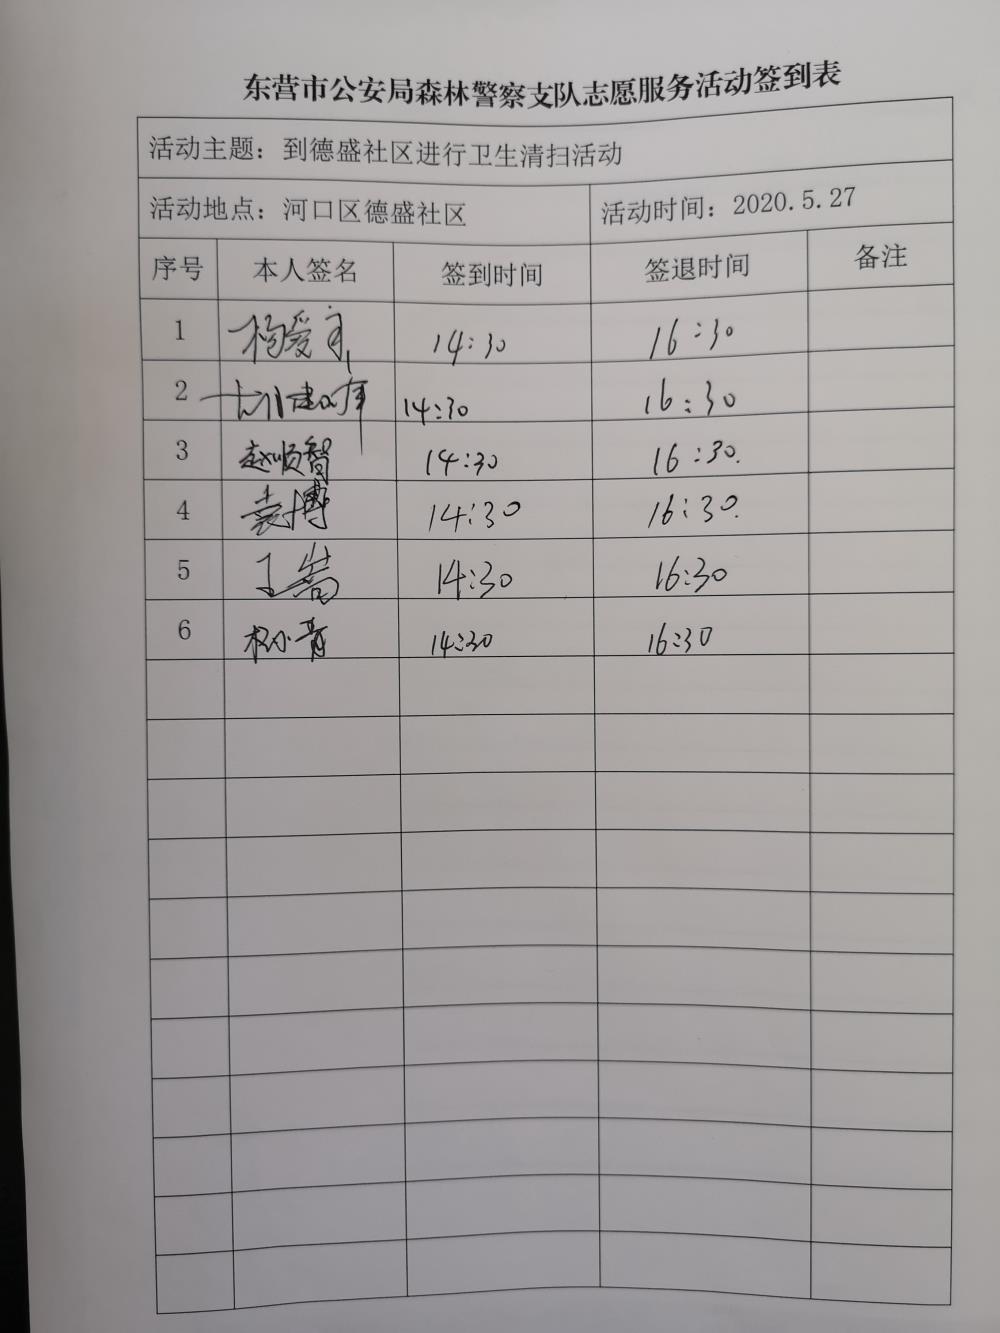 东营市公安局森林警察支队志愿服务活动签到表
活动主题：到德盛社区进行卫生清扫活动
活动地点：河口区德盛社区 活动时间：2020.5.27
序号 本人签名 签到时间 签退时间 备注
1 杨爱 14:30 16:30
2 14:30 16:30
3 赵顺智 14:30 16:30.
4 袁博 14:30 16:30.
5 王嵩 14:30 16:30
6 14:30 16:30